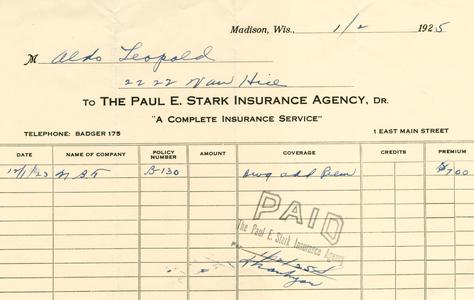 Madison, Wis., 1/2 1925
M Aldo Leopold
2222 Van Hise
TO THE PAUL E. STARK INSURANCE AGENCY, DR.
"A COMPLETE INSURANCE SERVICE"
TELEPHONE: BADGER 175 1 EAST MAIN STREET
DATE NAME OF COMPANY POLICY NUMBER AMOUNT COVERAGE CREDITS PREMIUM
B-130 Dwg add Prem
PAID
The Paul E. Stark Insurance Agency
PER